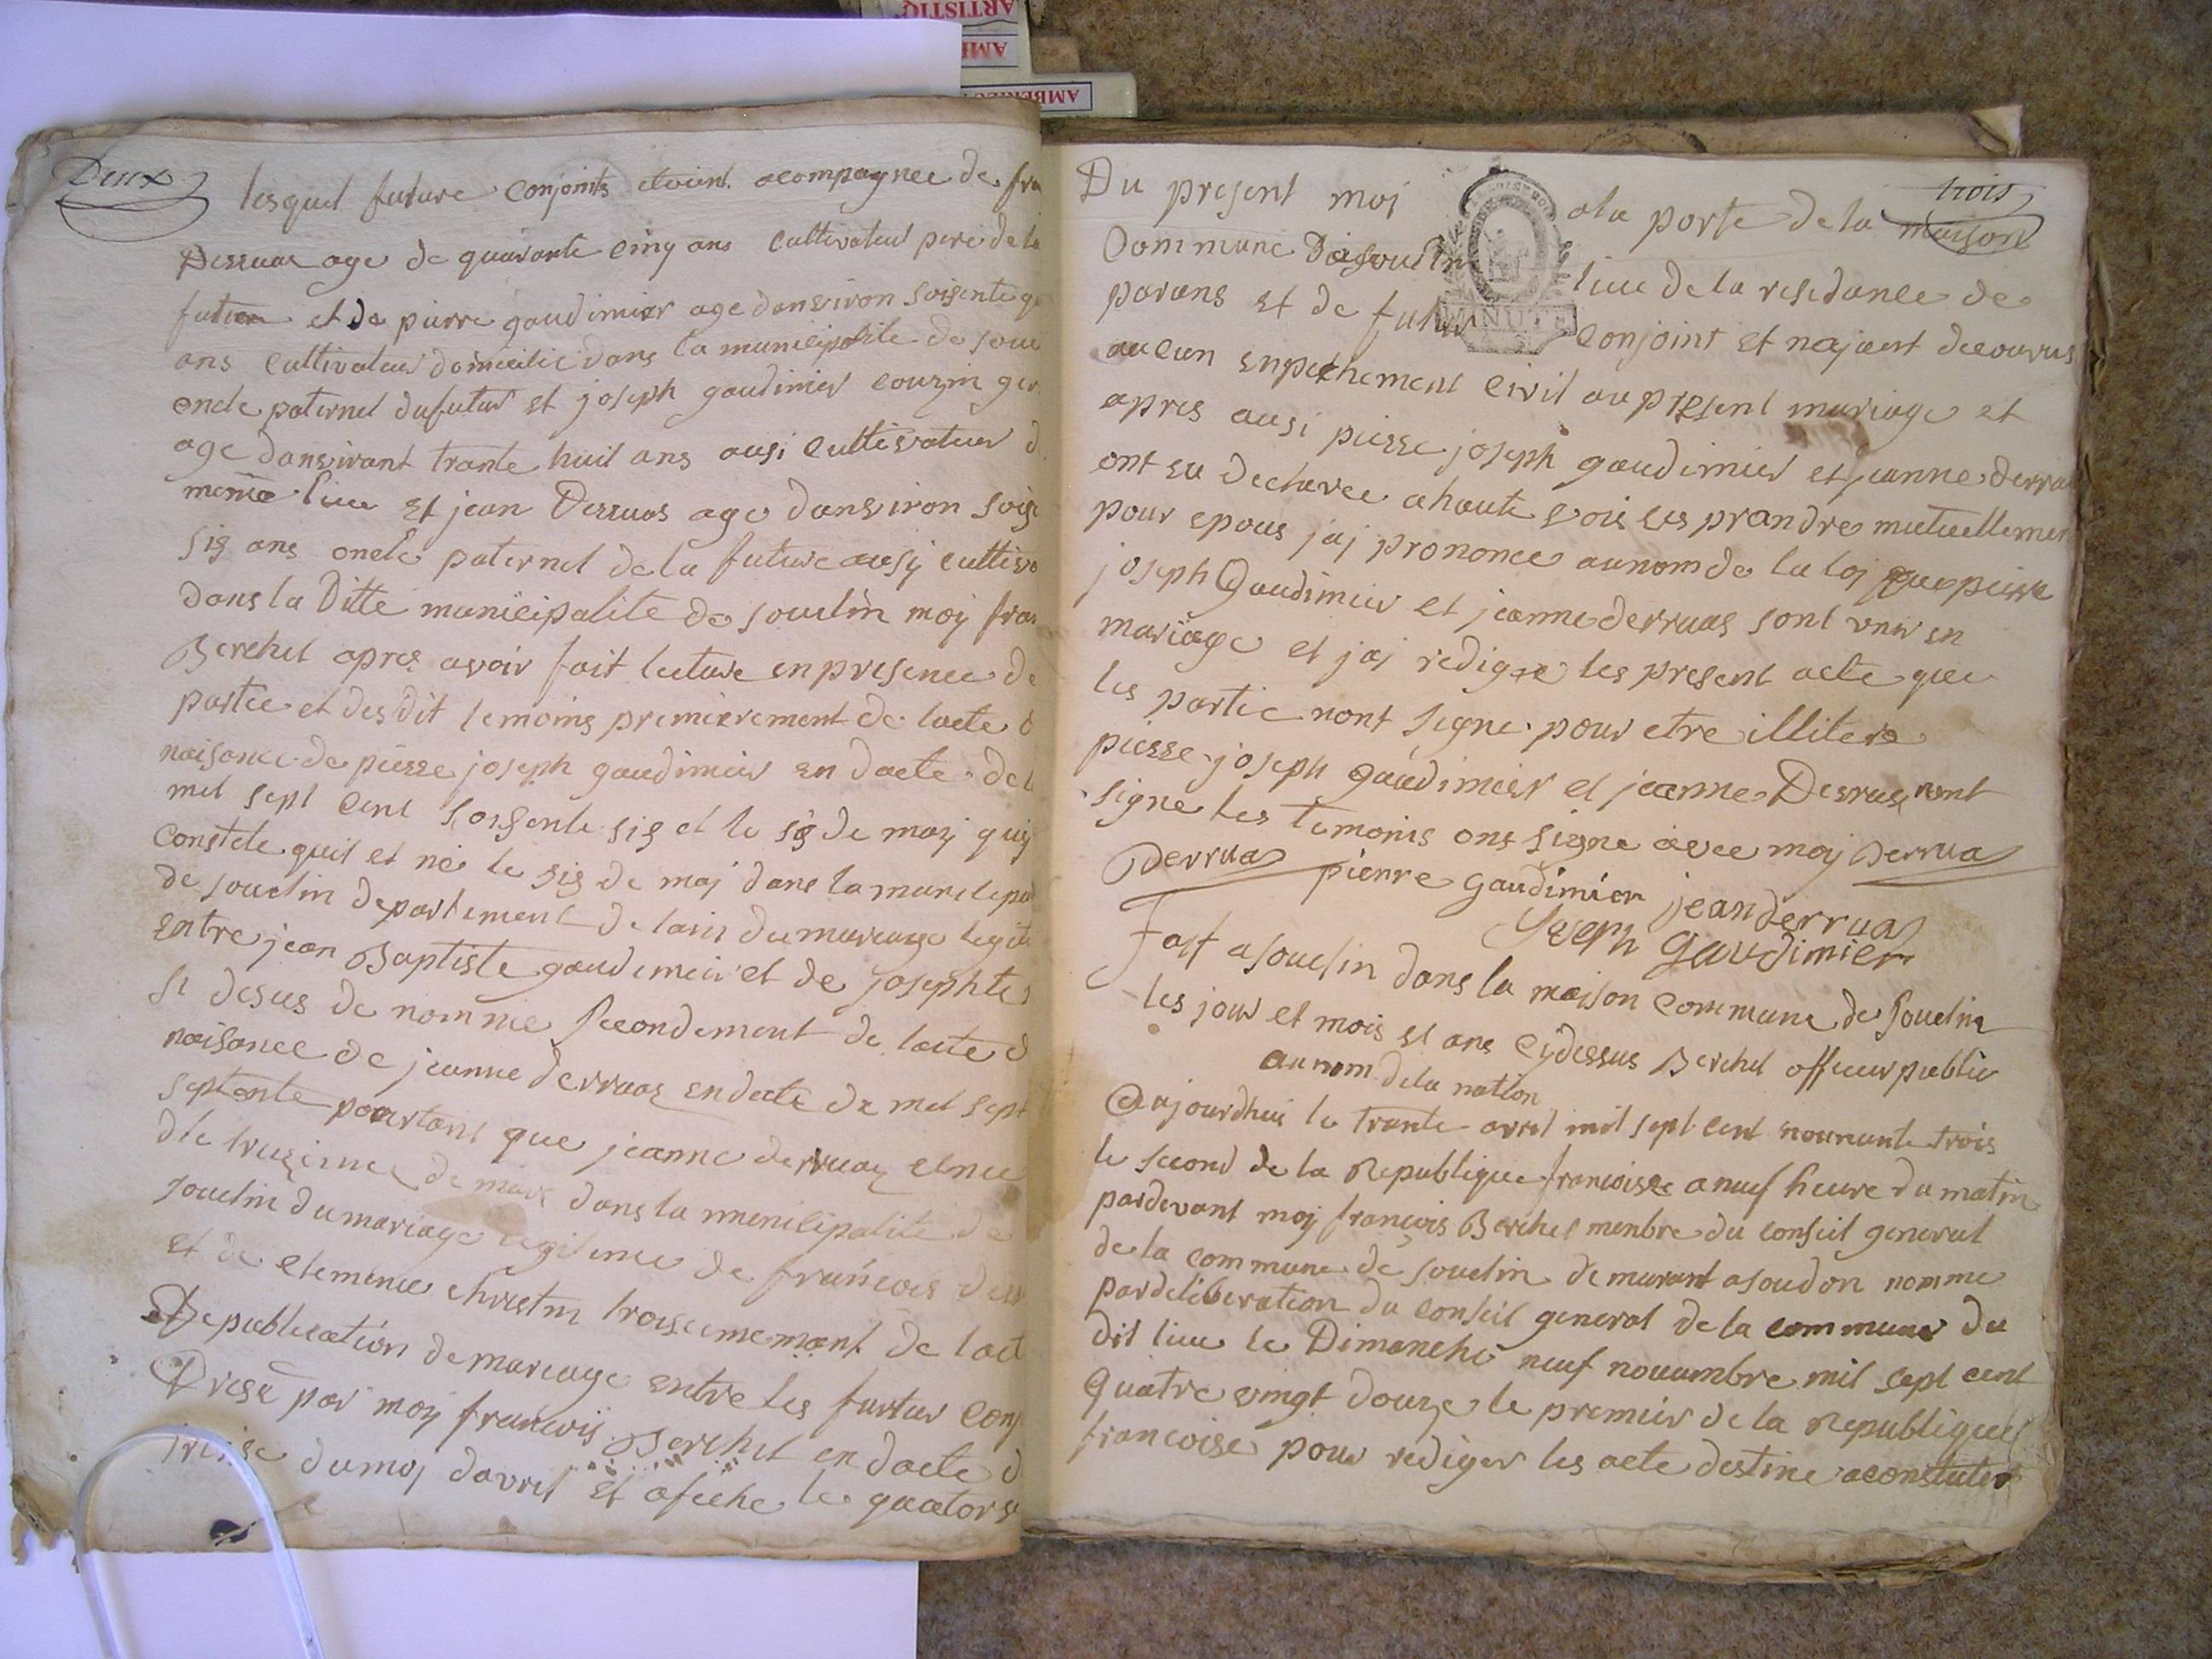 ARTISTIQ
AM
AMBERIEU
Deux
lesquel future conjoints etoient acompagnee de fra
Derruas age de quarante cinq ans cultivateur pere de la
future et de pierre gaudimier age danviron soisente qu
ans cultivateur domicilie dans la municipalite de souc
oncle paternel du futur et joseph gaudimier couzin ger
age danvirant trante huit ans ausi cultivateur d
meme lieu et jean Derruas age danviron sois
sis ans oncle paternel de la future ausy cultiva
dans la ditte municipalite de souclin moy fran
Berchet apres avoir fait lecture en presence de
partie et des dit temoins premierement de lacte d
naisance de pierre joseph gaudimier en dacte de
mil sept cent soisente sis et le sis de may qui
constate quil et né le sis de maj dans la municipa
de souclin departement de lain du mariage legiti
entre jean Baptiste gaudimier et de josephte
si desus de nommé secondement de lacte d
naisance de jeanne derruas en dacte de mil sept
septente pourtant que jeanne derruas et nee
dans la municipalite de
souclin du mariage legitime de francois derr
et de clemence christin troisiemement de lact
De publication de mariage entre les furtur conj
Dresé par moy francois Berchet en dacte d
treise du moj davril et afiche le quatorse
trois
Du present moj a la porte de la maison
Commune de souclin lieu de la residance de
MINUTE
parans et de futur conjoint et najant decouvus
aucun enpechement civil au present mariage et
apres ausi piesse joseph gaudimier et jeanne derrua
ont eu declaree a haute vois ses prandre mutuellemen
pour epous jaj prononce au nom de la loj que piesse
joseph Gaudimier et jeanne derruas sont unis en
mariage et jaj redige les present acte que
les partie nont signe pour etre illitere
piesse joseph gaudimier et jeanne Derruas nont
signe les temoins ont signe avec moy Derrua
Derruas pierre gaudimier jean derruas
Joseph gaudimier
Fait a souclin dans la maison commune de souclin
les jour et mois et ans cydessus Berchet officier public
au nom de la nation
aujourdhui le trante avril mil sept cent nonnante trois
le second de la Republique francoise a neuf heure du matin
pardevant moj françois Berchet menbre du conseil general
de la commune de souclin demurant a soudon nomme
par deliberation du conseil general de la commune du
dit lieu le Dimanche neuf nouvambre mil sept cent
quatre vingt douze le premier de la Republique
francoise pour rediger les acte destine a constater